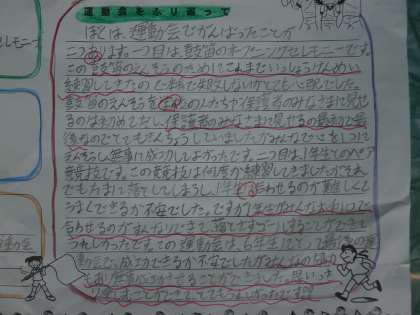 運動会をふり返って
ぼくは、運動会でがんばったことが
二つあります。一つ目は、鼓笛のオープニングセレモニーです。
この鼓笛のえんそうのためにこれまでいっしょうけんめい
練習してきたので本番で失敗しないかとても心配でした。
鼓笛のえんそうを の人たちや保護者のみなさまに見せ
るのは初めてだし、保護者のみなさまに見せるのも最初で最
後なのでとてもきんちょうしていましたがみんなで心を1つにして
えんそうし無事に成功してよかったです。二つ目は、1年生とのペア
競技です。この競技は何度か練習してきましたがそれ
でもたまに落としてしまうし、1年生に合わせるのが難しくて
うまくできるか不安でした。ですが1年生が
合わせるのが 落とさずゴールすることができて
うれしかったです。この運動会は、6年生にとって最後の運
動会で、成功できるか不安でしたがみんなの
無事成功させることができました。思いっき
り楽しむことができてとてもよかったです。